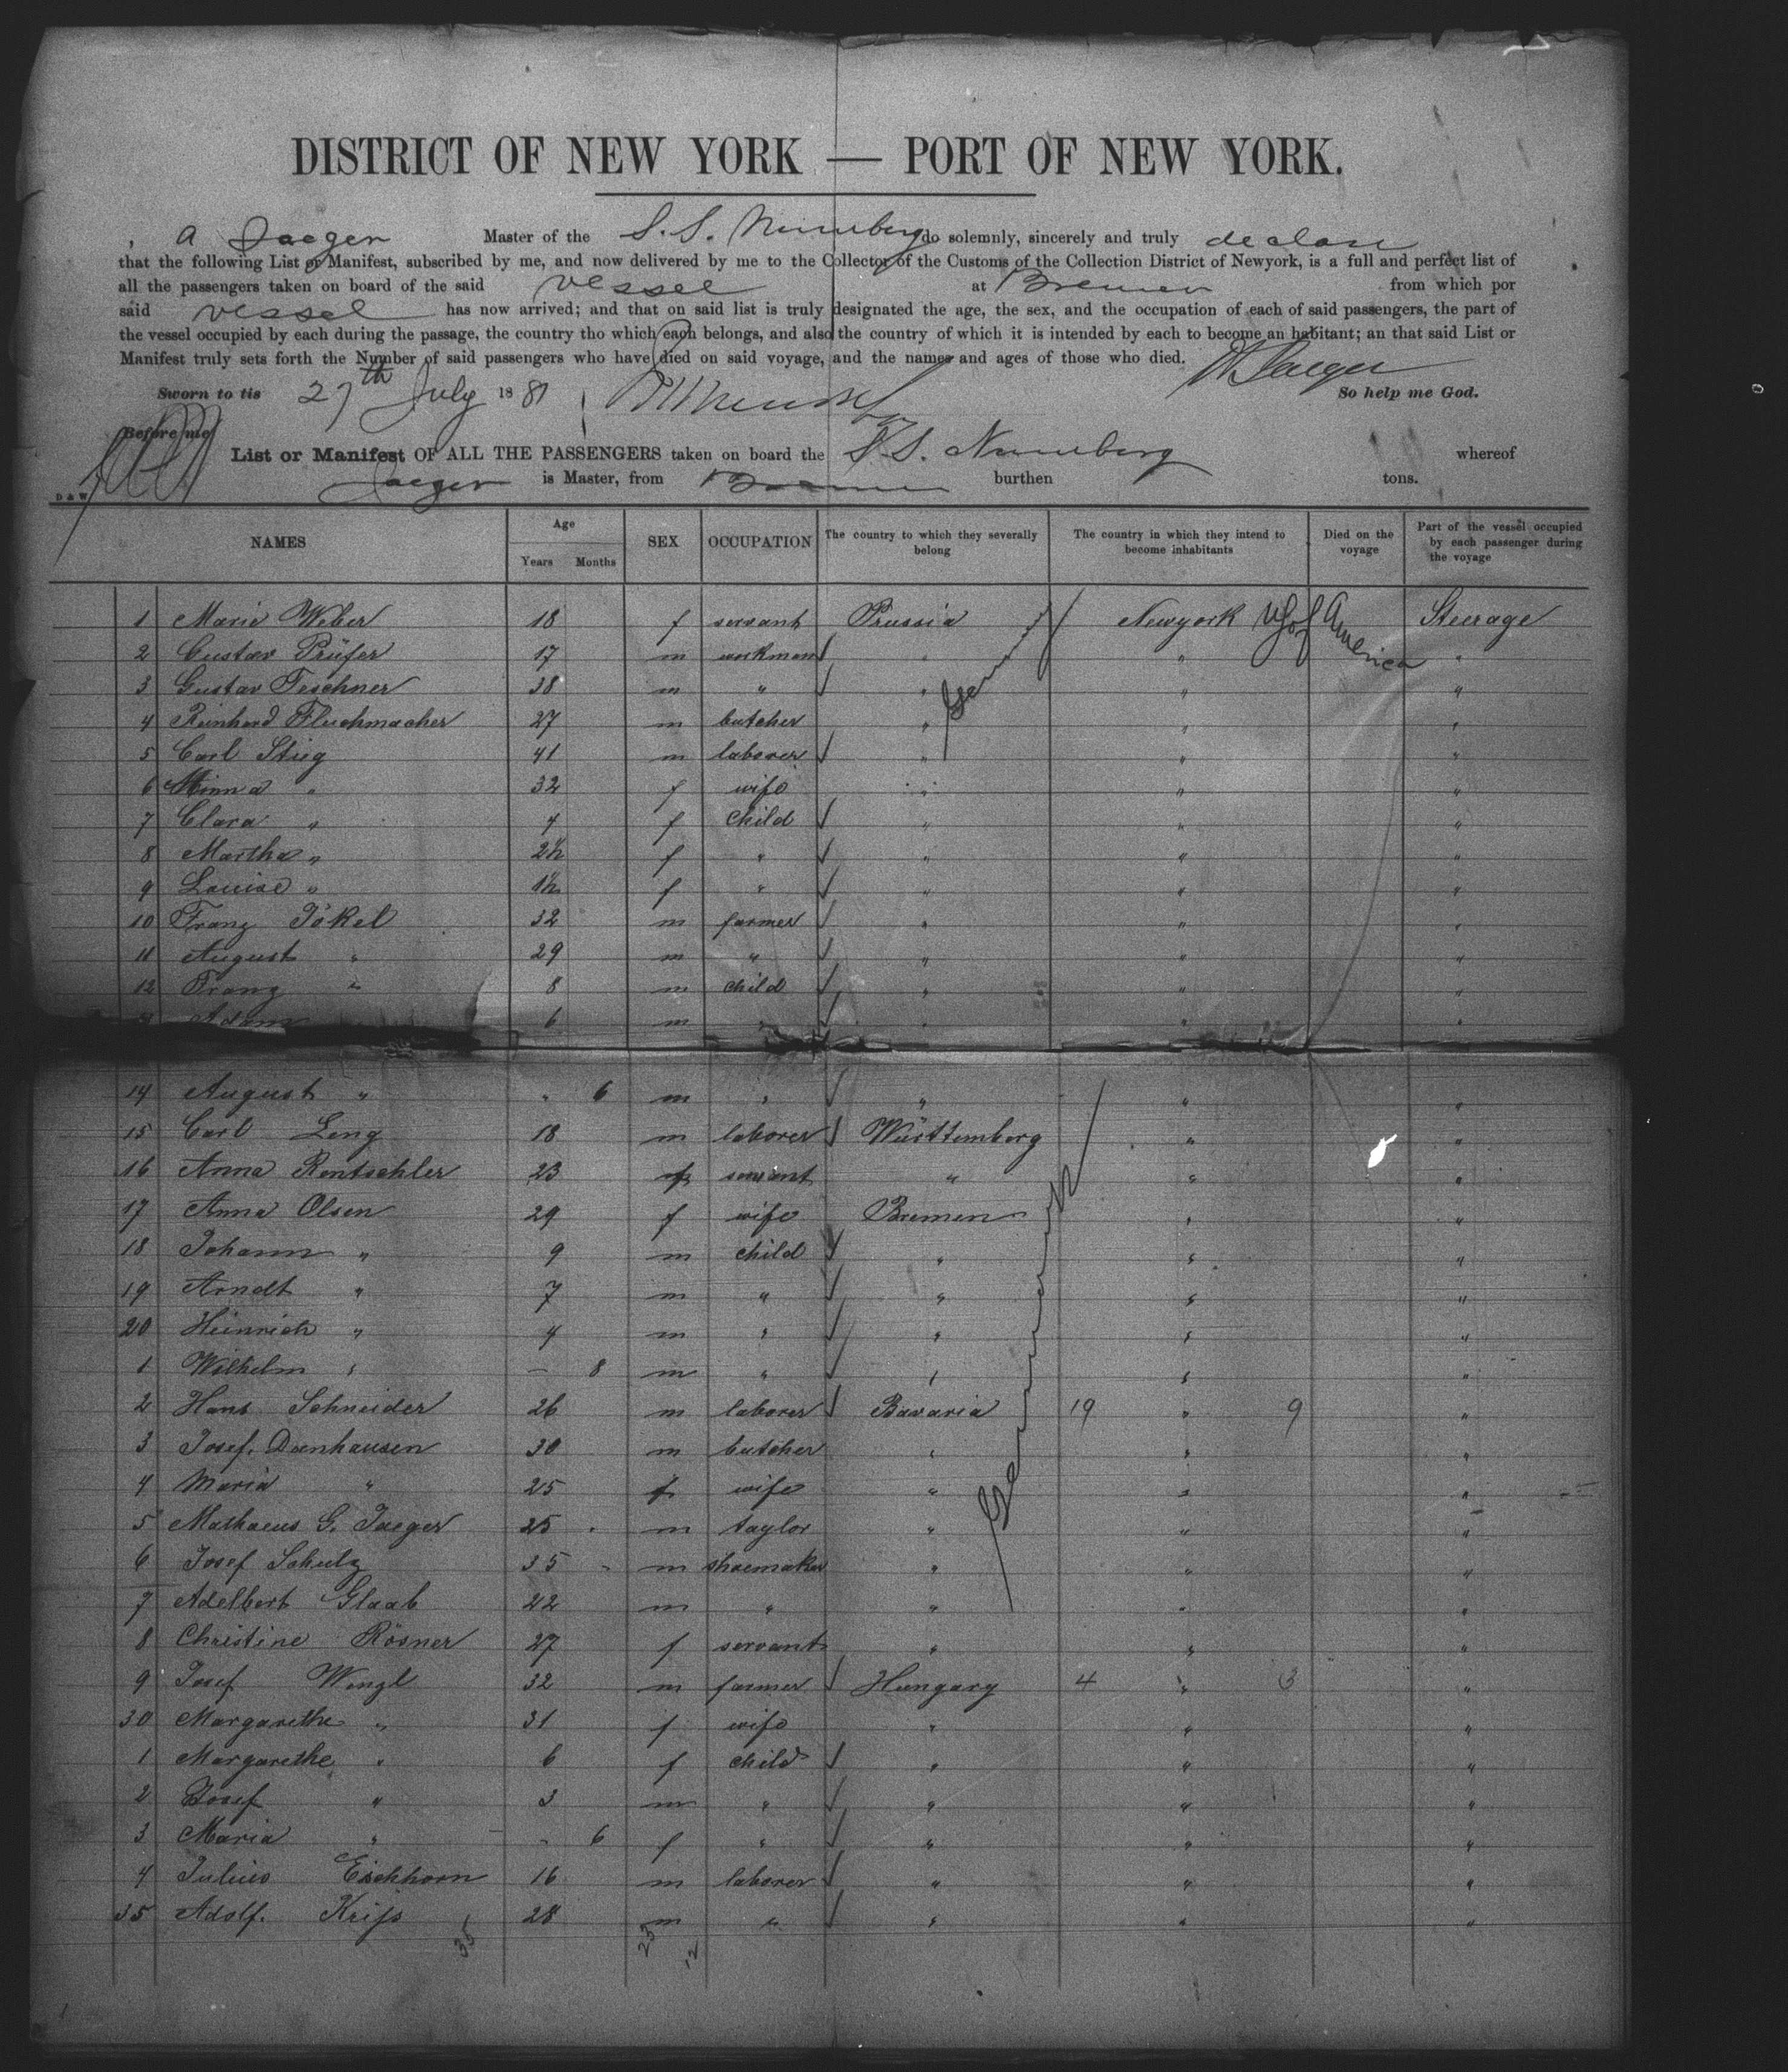 DISTRICT OF NEW YORK — PORT OF NEW YORK.
, A Jaeger Master of the S. S. Nurnberg do solemnly, sincerely and truly declare
that the following List or Manifest, subscribed by me, and now delivered by me to the Collector of the Customs of the Collection District of Newyork, is a full and perfect list of
all the passengers taken on board of the said vessel at Bremen from which por
said vessel has now arrived; and that on said list is truly designated the age, the sex, and the occupation of each of said passengers, the part of
the vessel occupied by each during the passage, the country tho which each belongs, and also the country of which it is intended by each to become an habitant; an that said List or
Manifest truly sets forth the Number of said passengers who have died on said voyage, and the names and ages of those who died. Jaeger
Sworn to tis 27th July 1881 So help me God.
Before me
List or Manifest OF ALL THE PASSENGERS taken on board the S. S. Nurnberg whereof
Jaeger is Master, from Bremen burthen tons.
D & W
NAMES Age Years Months SEX OCCUPATION The country to which they severally belong The country in which they intend to become inhabitants Died on the voyage Part of the vessel occupied by each passenger during the voyage
1 Marie Weber 18 f servant Prussia Germany Newyork US of America Steerage
2 Gustav Prüfer 17 m workman " " "
3 Gustav Teschner 38 m " " " "
4 Reinhard Fluchmacher 27 m butcher " " "
5 Carl Stieg 41 m laborer " " "
6 Minna " 32 f wife " " "
7 Clara " 4 f child " " "
8 Martha " 2½ f " " " "
9 Louise " 1½ f " " " "
10 Franz Jökel 32 m farmer " " "
11 August " 29 m " " " "
12 Franz " 8 m child " " "
Adam 6 m " " " "
14 August " " 6 m " " " "
15 Carl Leng 18 m laborer Württemberg " "
16 Anna Rentschler 23 f servant " " "
17 Anna Olsen 29 f wife Bremen Germany " "
18 Johann " 9 m child " " "
19 Arndt " 7 m " " " "
20 Heinrich " 4 m " " " "
1 Wilhelm " — 8 m " " " "
2 Hans Schneider 26 m laborer Bavaria 19 " 9 "
3 Josef Doenhausen 30 m butcher " " "
4 Maria " 25 f wife " " "
5 Mathaeus G. Jaeger 25 m taylor " " "
6 Josef Schulz 35 m shoemaker " " "
7 Adelbert Glaab 22 m " " " "
8 Christine Rösner 27 f servant " " "
9 Josef Wenzl 32 m farmer Hungary 4 " 3 "
30 Margarethe " 31 f wife " " "
1 Margarethe " 6 f child " " "
2 Josef " 3 m " " " "
3 Maria " - 6 f " " " "
4 Julius Eichhorn 16 m laborer " " "
35 Adolf. 28 m " " " "
35 23 12